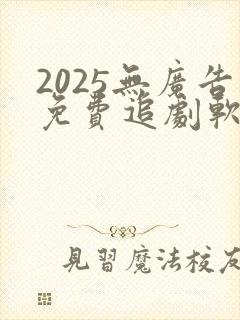 2025無廣告
免費追劇軟
見習魔法校友